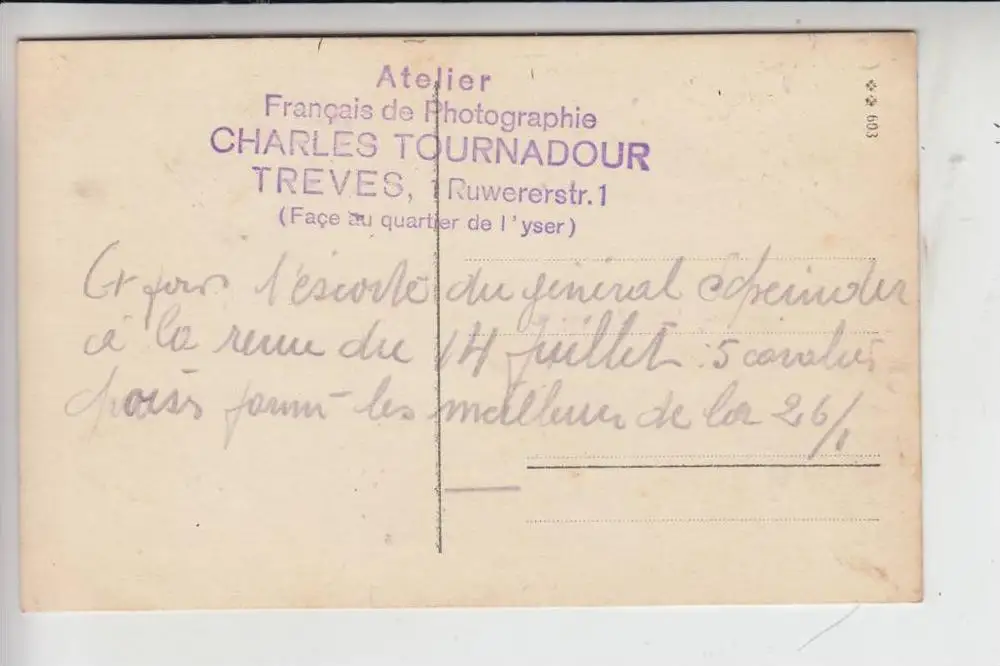 Atelier
Français de Photographie
CHARLES TOURNADOUR
TREVES, 1 Ruwererstr. 1
(Façe au quartier de l'yser)
603
l'éscorte du général
à la revue du 14 Juillet : 5 cavaliers
choisis parmi les meilleurs de la 26/1